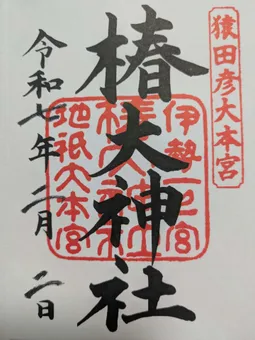 猿田彦大本宮
椿大神社
伊勢一之宮
椿大神社
地祇大本宮
令和七年二月二日